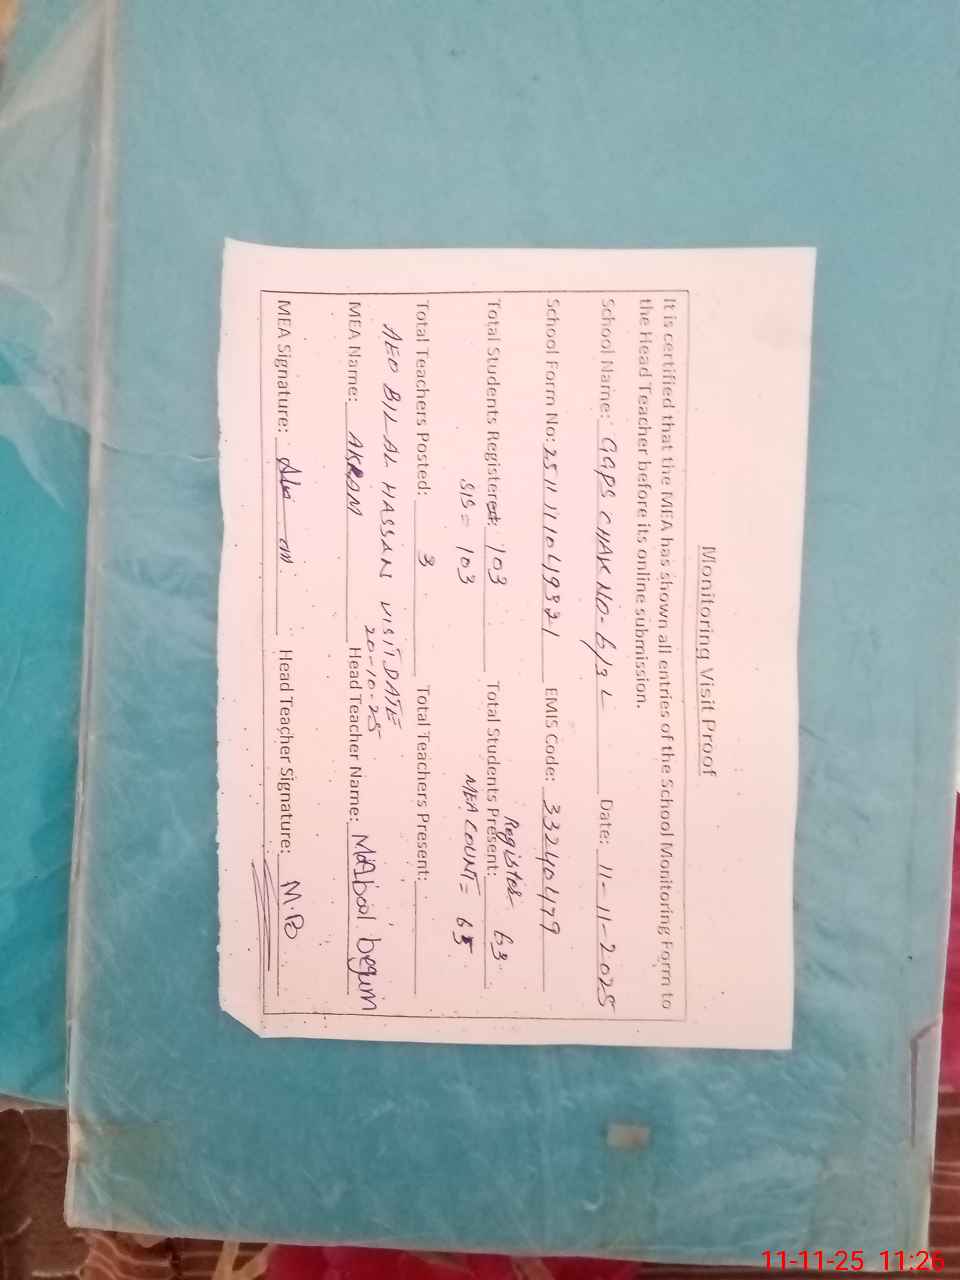 Monitoring Visit Proof
It is certified that the MEA has shown all entries of the School Monitoring Form to
the Head Teacher before its online submission.
School Name: GGPS CHAK NO-6/3L Date: 11-11-2025
School Form No: 251111049321 EMIS Code: 33240479
Register
Total Students Registered: 103 Total Students Present: 63
SIS = 103 MEA COUNT = 65
Total Teachers Posted: 3 Total Teachers Present:
AEO BILAL HASSAN VISIT DATE
20-10-25
MEA Name: AKRAM Head Teacher Name: begum
MEA Signature: Head Teacher Signature:
11-11-25 11:26